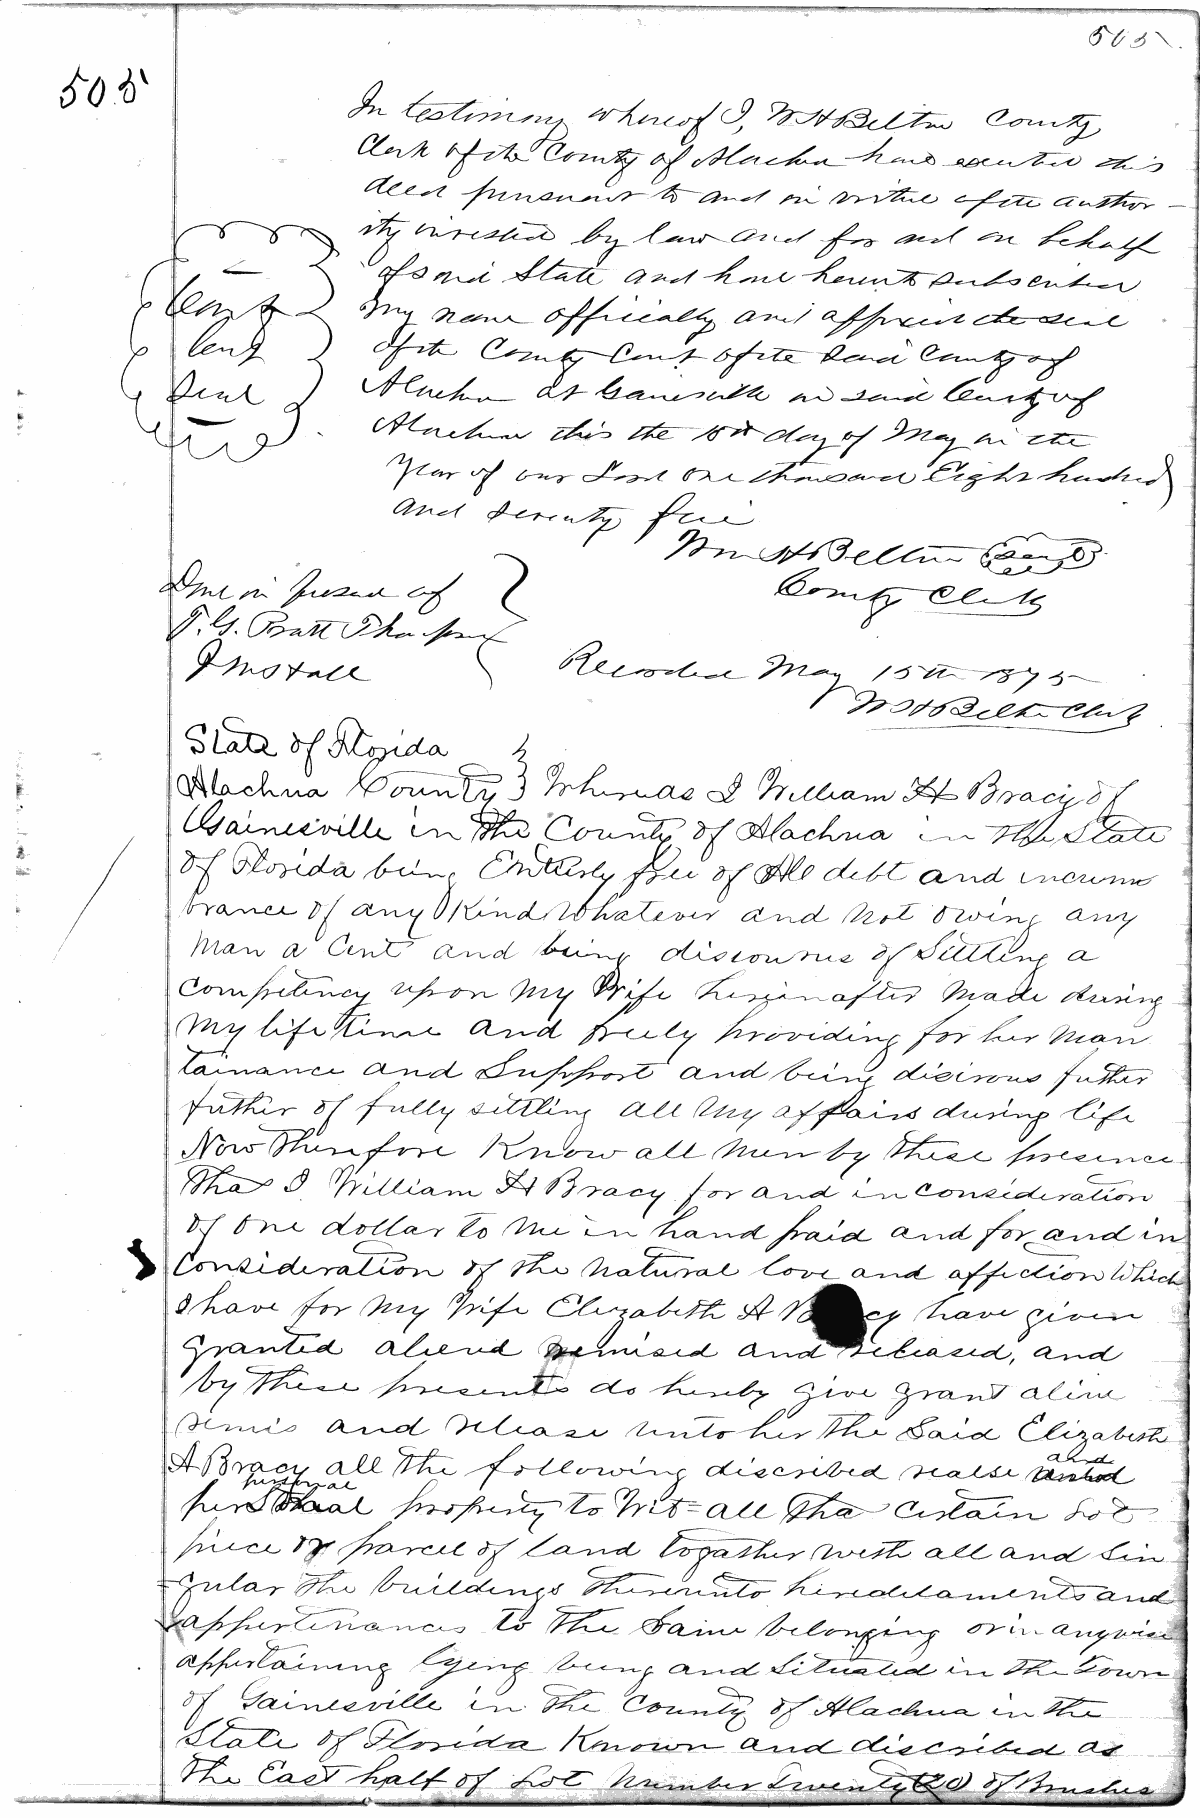 505
505
In testimony whereof I, W H Belton County
Clerk of the County of Alachua have executed this
deed pursuant to and in virtue of the author-
ity invested by law and for and on behalf
of said State and have hereunto subscribed
my name officially and affixed the seal
of the County Court of the said County of
Alachua at Gainesville in said County of
Alachua this the day of May in the
year of our Lord one thousand Eight hundred
and seventy five
County
Seal
Wm H Belton Seal
County Clerk
Done in presence of
T. G. Pratt
Recorded May 15th 1875
W H Belton Clerk
State of Florida
Alachua County } Whereas I William H Bracy of
Gainesville in the County of Alachua in the State
of Florida being Entirely free of All debt and incum
brance of any Kind Whatever and not owing any
Man a Cent and being of Settling a
competency upon my Wife hereinafter Made during
My life time and freely providing for her Man
tainance and Support and being disirous futher
futher of fully settling all My affairs during life
Now Therefore Know all Men by these presence
That I William H Bracy for and in consideration
of one dollar to me in hand paid and for and in
Consideration of the natural love and affection Which
I have for my Wife Elizabeth A have given
granted aliend remised and released, and
by these presents do hereby give grant aline
remis and release unto her the Said Elizabeth
A Bracy all the following discribed realse and
personal property to Wit = all Tha Certain Lot
piece or parcel of land togather with all and Sin
gular the buildings thereunto heredetaments and
appertenances to the Same belonging or in anywise
appertaining lyeng being and Situated in the Town
of Gainesville in the County of Alachua in the
State of Florida Known and discribed as
the East half of Lot Number Twenty (20) of Brushes